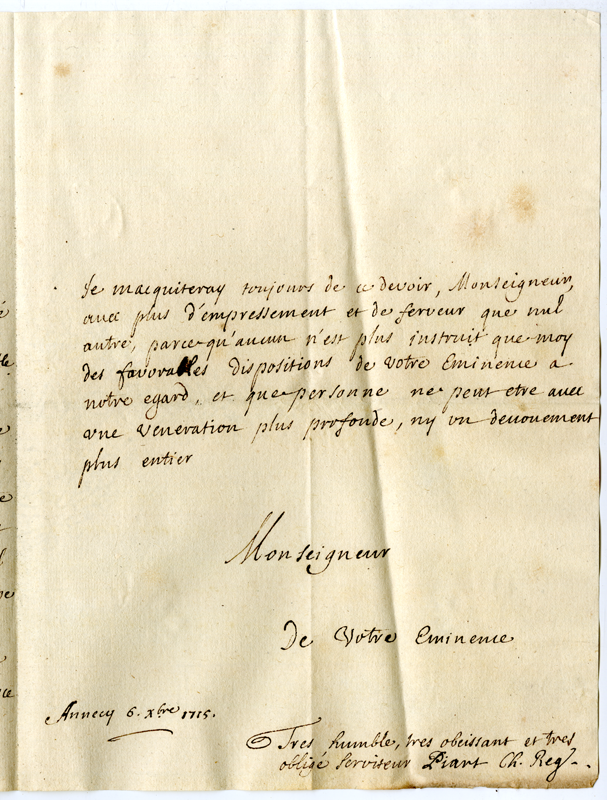 Je macquiteray toujours de ce devoir, Monseigneur,
avec plus d'empressement et de ferveur que nul
autre, parce qu'aucun n'est plus instruit que moy
des favorables dispositions de votre Eminence a
notre egard, et que personne ne peut etre avec
vne veneration plus profonde, ny vn devouement
plus entier
Monseigneur
De Votre Eminence
Annecy 6. xbre 1715.
Tres humble, tres obeissant et tres
obligé serviteur Piart Ch. Reg.